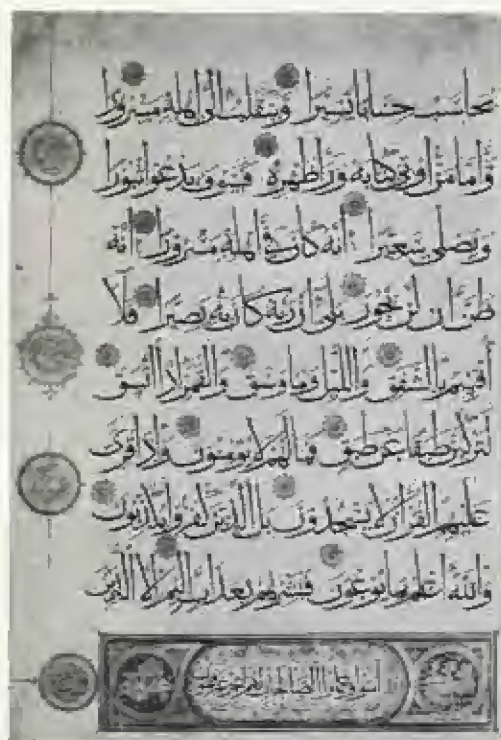 يحاسب حسابا يسيرا وينقلب الى اهله مسرورا
واما من اوتي كتابه ورا ظهره فسوف يدعو ثبورا
ويصلى سعيرا انه كان في اهله مسرورا انه
ظن ان لن يحور بلى ان ربه كان به بصيرا فلا
اقسم بالشفق والليل وما وسق والقمر اذا اتسق
لتركبن طبقا عن طبق فما لهم لا يومنون واذا قرئ
عليهم القران لا يسجدون بل الذين كفروا يكذبون
والله اعلم بما يوعون فبشرهم بعذاب اليم الا الذين
امنوا وعملوا الصالحات لهم اجر غير